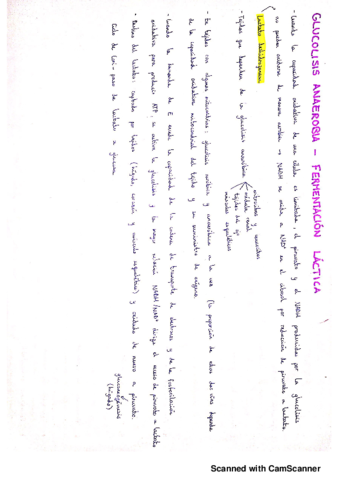 GLUCOLISIS ANAEROBIA - FERMENTACIÓN LÁCTICA
- Cuando la capacidad oxidativa de una célula es limitada, el piruvato y el NADH producidos por la glucolisis
no pueden oxidarse de manera aerobia → NADH se oxida a NAD+ en el citosol por reducción de piruvato a lactato
Lactato deshidrogenasa
- Tejidos que dependen de la glucolisis anaerobia
eritrocitos y leucocitos
médula renal
tejidos del ojo
músculos esqueléticos
- En tejidos con algunas mitocondrias: glucolisis aerobia y anaerobia a la vez (la proporción de estas dos vías depende
de la capacidad oxidativa mitocondrial del tejido y su suministro de oxígeno.
- Cuando la demanda de E excede la capacidad de la cadena de transporte de electrones y de la fosforilación
oxidativa para producir ATP, se activa la glucolisis y la mayor relación NADH/NAD+ dirige el exceso de piruvato a lactato
- Destino del lactato: captado por tejidos (hígado, corazón y músculo esquelético) y oxidado de nuevo a piruvato.
Ciclo de Cori - pasa de lactato a glucosa
gluconeogénesis
(hígado)
Scanned with CamScanner